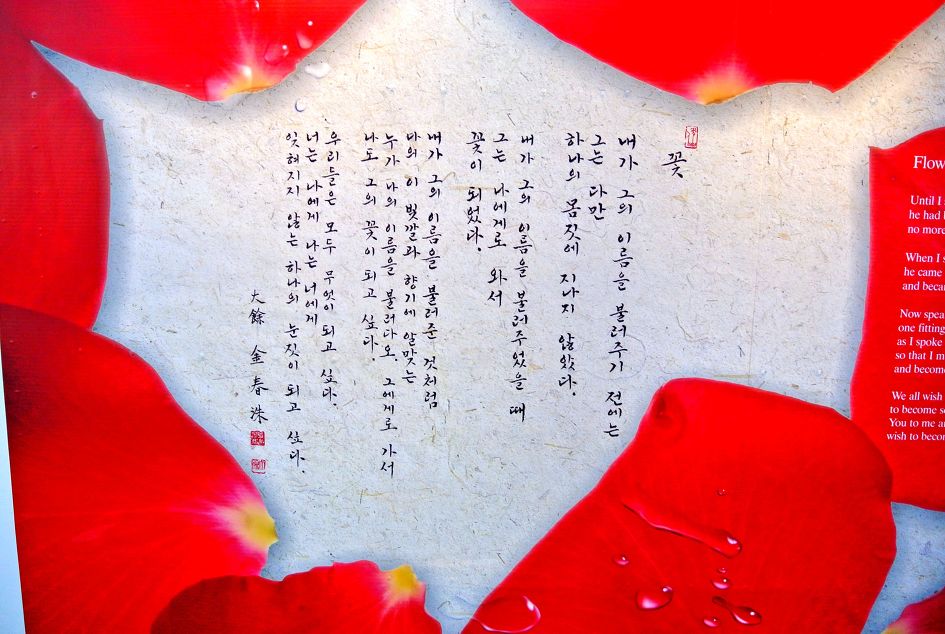 꽃
내가 그의 이름을 불러주기 전에는
그는 다만
하나의 몸짓에 지나지 않았다.
내가 그의 이름을 불러주었을 때
그는 나에게로 와서
꽃이 되었다.
내가 그의 이름을 불러준 것처럼
나의 이 빛깔과 향기에 알맞는
누가 나의 이름을 불러다오. 그에게로 가서
나도 그의 꽃이 되고 싶다.
우리들은 모두 무엇이 되고 싶다.
너는 나에게 나는 너에게
잊혀지지 않는 하나의 눈짓이 되고 싶다.
大餘 金春洙
Flow
Until I
he had
no more
When I
he came
and beca
Now spea
one fitting
as I spoke
so that I
and become
We all wish
to become
You to me
wish to become